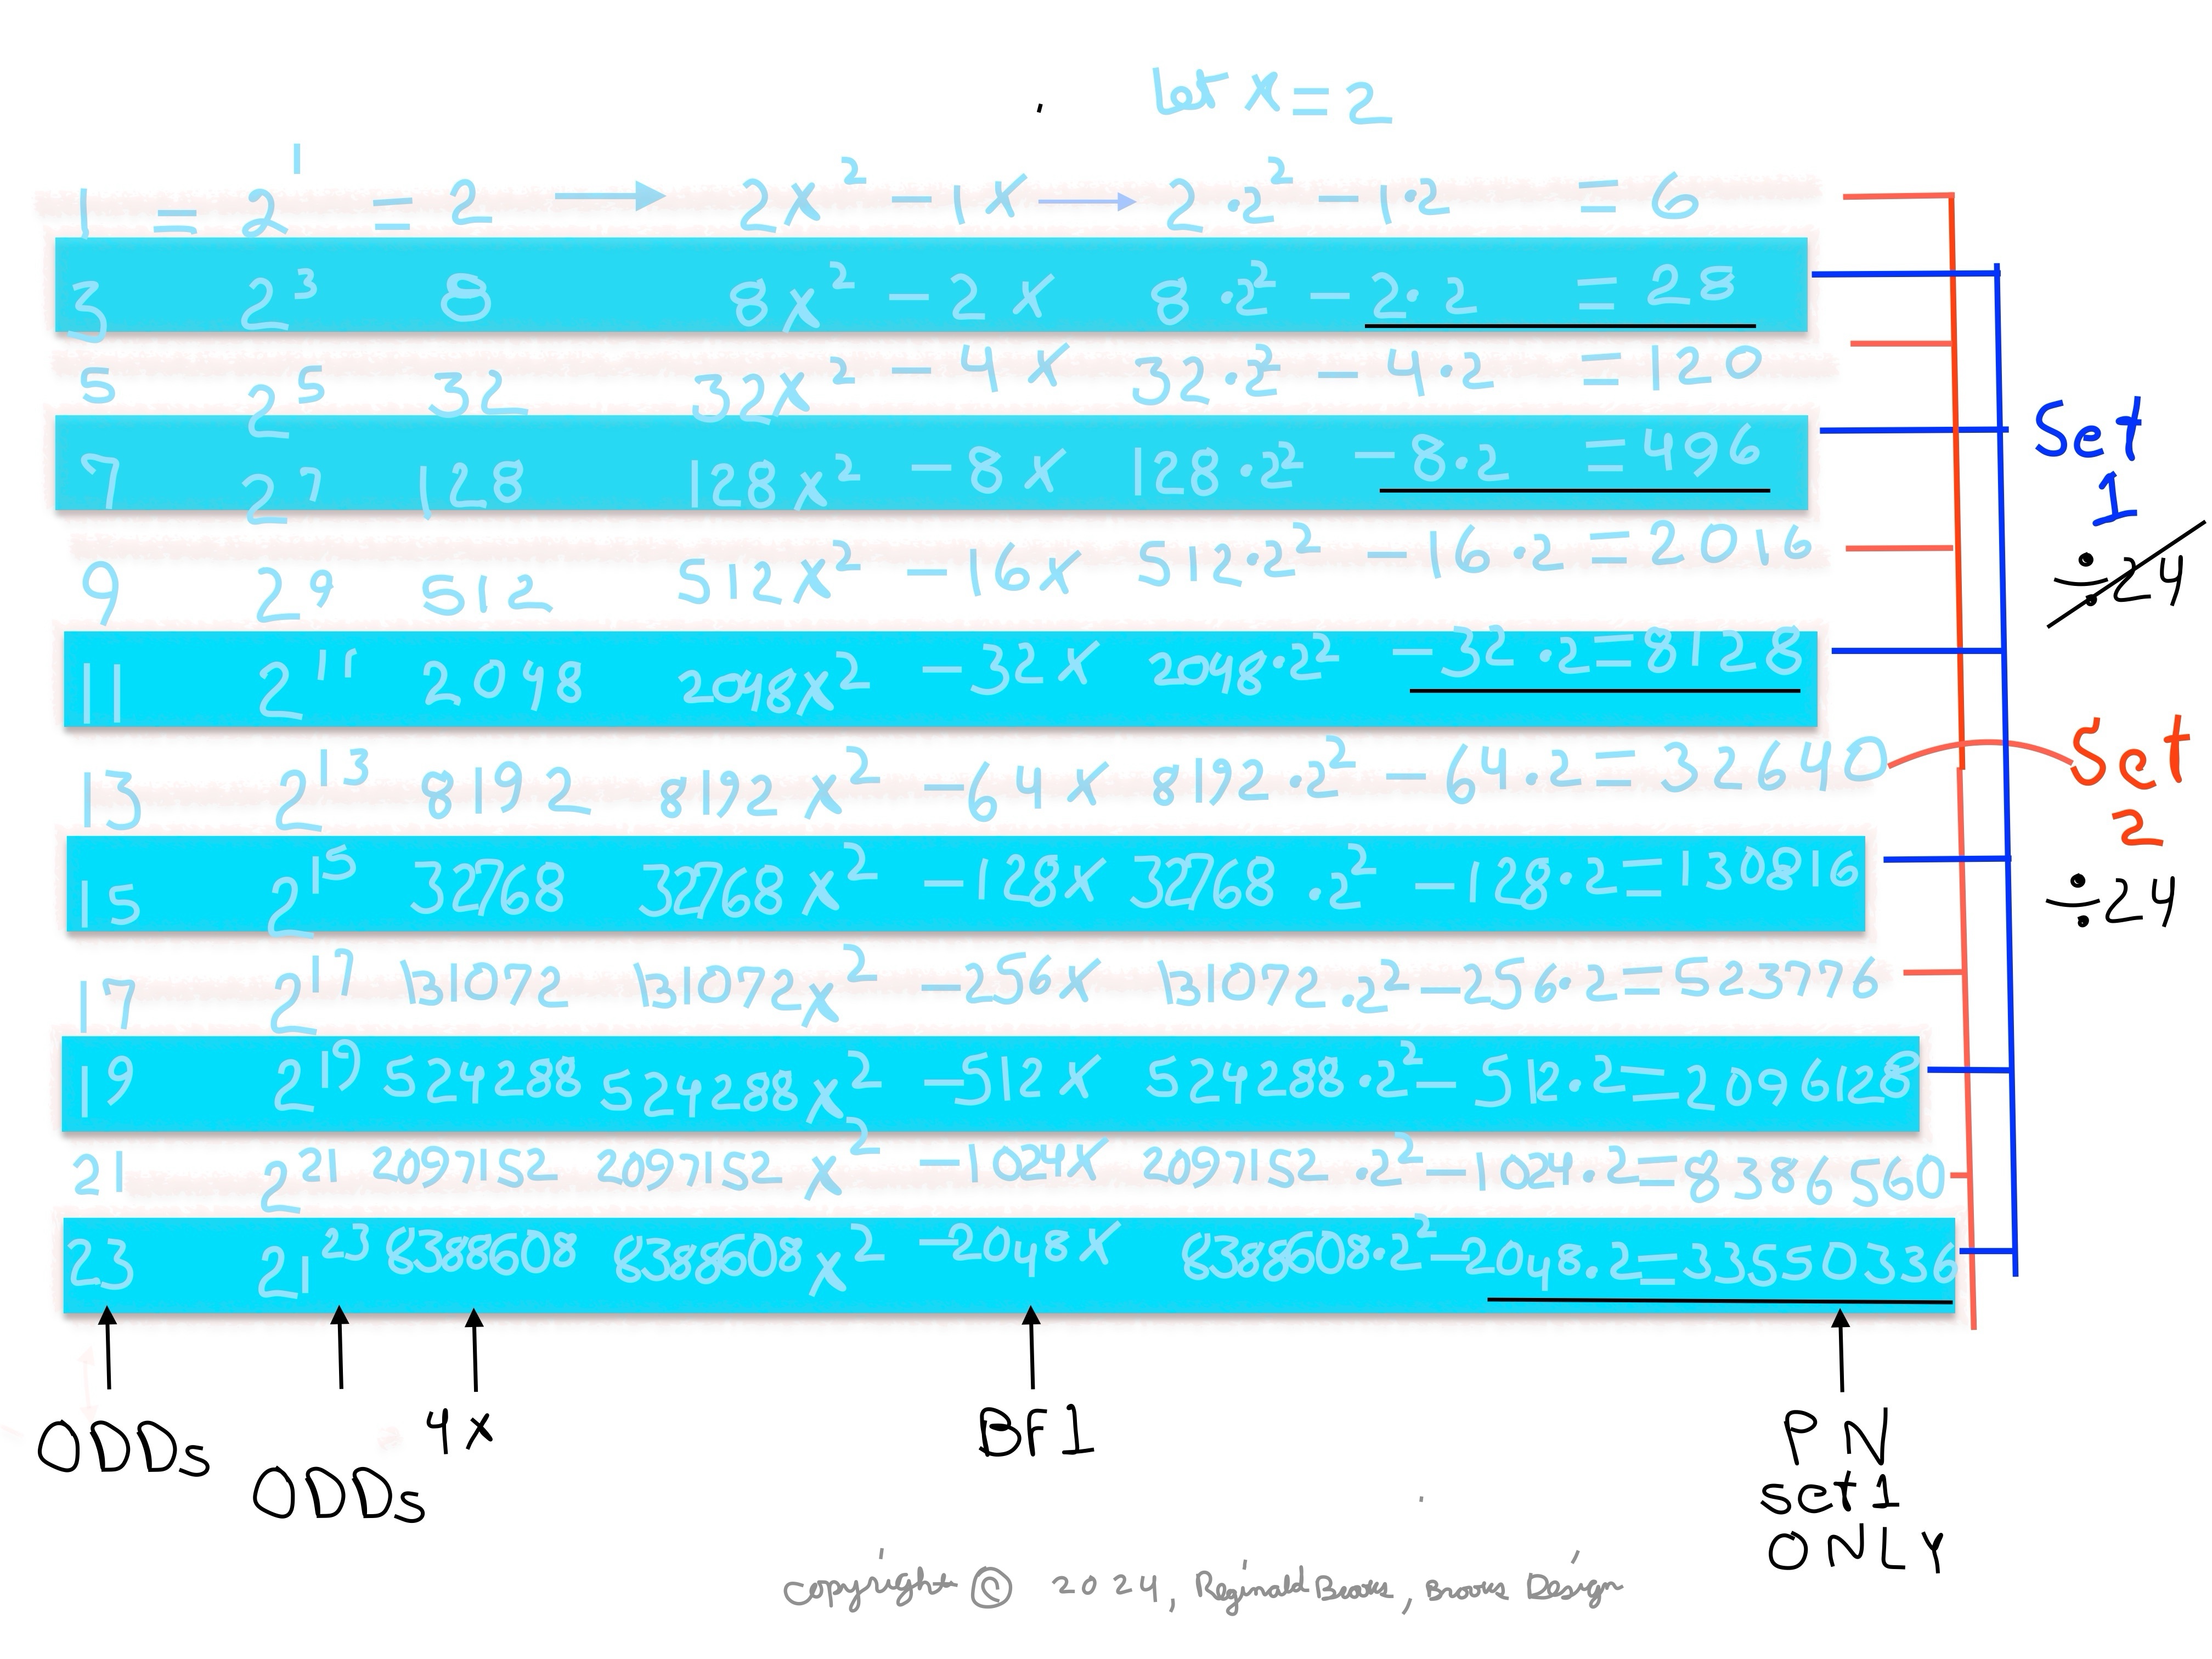 let x = 2
1 = 2¹ = 2 → 2x² − 1x → 2·2² − 1·2 = 6
3 2³ 8 8x² − 2x 8·2² − 2·2 = 28
5 2⁵ 32 32x² − 4x 32·2² − 4·2 = 120
7 2⁷ 128 128x² − 8x 128·2² − 8·2 = 496
9 2⁹ 512 512x² − 16x 512·2² − 16·2 = 2016
11 2¹¹ 2048 2048x² − 32x 2048·2² − 32·2 = 8128
13 2¹³ 8192 8192x² − 64x 8192·2² − 64·2 = 32640
15 2¹⁵ 32768 32768x² − 128x 32768·2² − 128·2 = 130816
17 2¹⁷ 131072 131072x² − 256x 131072·2² − 256·2 = 523776
19 2¹⁹ 524288 524288x² − 512x 524288·2² − 512·2 = 2096128
21 2²¹ 2097152 2097152x² − 1024x 2097152·2² − 1024·2 = 8386560
23 21²³ 8388608 8388608x² − 2048x 8388608·2² − 2048·2 = 33550336
Set
1
÷24
Set
2
÷24
ODDs
ODDs
4x
BF1
PN
set1
ONLY
copyright © 2024, Reginald Brooks, Brooks Design